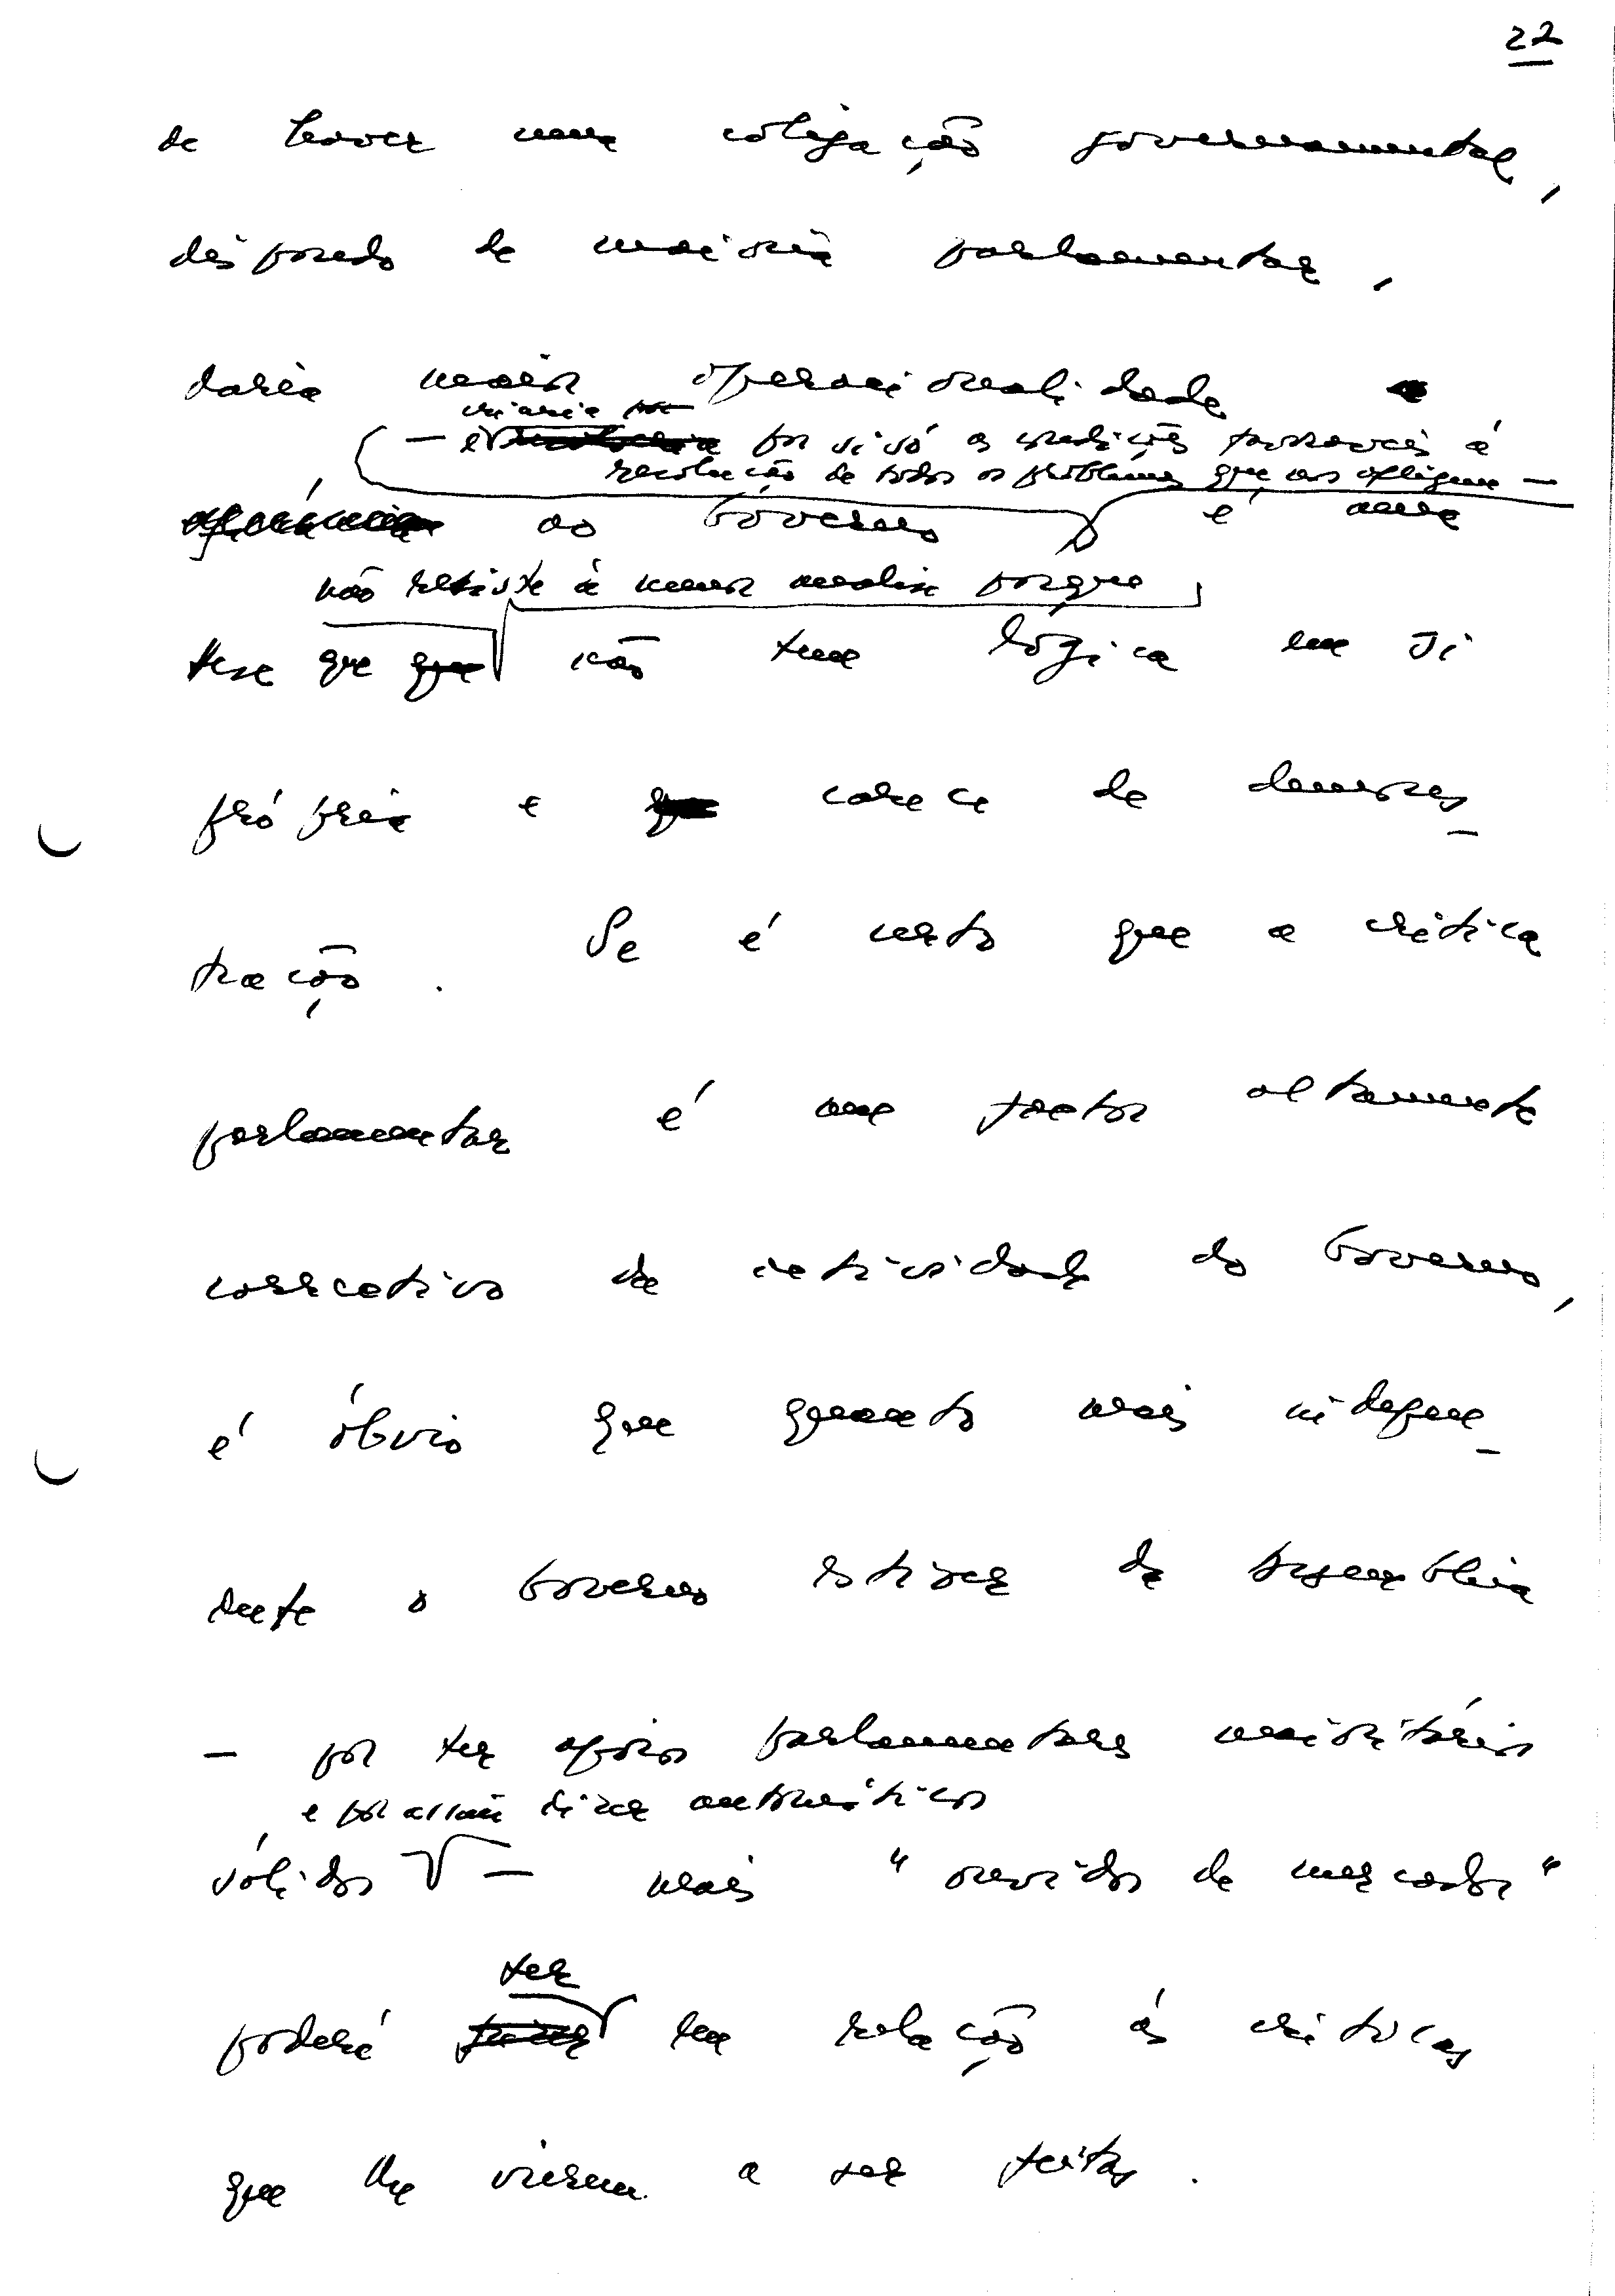 22
de haver uma coligação governamental,
dispondo de maioria parlamentar,
daria maior operacionalidade
criaria
— e por si só as condições favoráveis à
resolução de todos os problemas que nos afligem —
ao Governo é uma
não resiste à menor análise porque
tese que não tem lógica em si
própria e carece de demons-
tração. Se é certo que a crítica
parlamentar é um factor altamente
correctivo da actividade do Governo,
é óbvio que quanto mais indepen-
dente o Governo estiver da Assembleia
— por ter apoios parlamentares maioritários
e por assim dizer automáticos
sólidos — mais "ouvidos de mercador"
ter
poderá em relação às críticas
que lhe vierem a ser feitas.